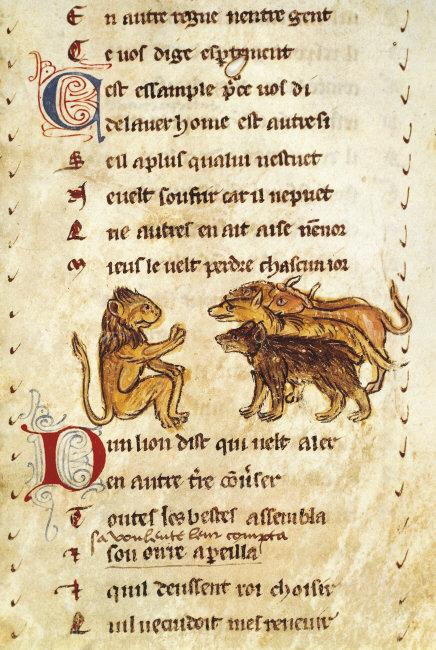 En autre regne nentre gent
Ce vos dige espertement
Cest essample pce vos di
Delaver home est autresi
Keil a plus qualui nestuet
Nevelt soufrir car il nepuet
Ne autres en ait aise nēnor
Mieus le velt perdre chascun ior
Dun lion dist qui velt aler
En autre tre cōuser
Toutes les bestes assembla
sa voulente leur compta
son oirre apeilla
quil deussent roi choisir
nil necuidoit mes revenir